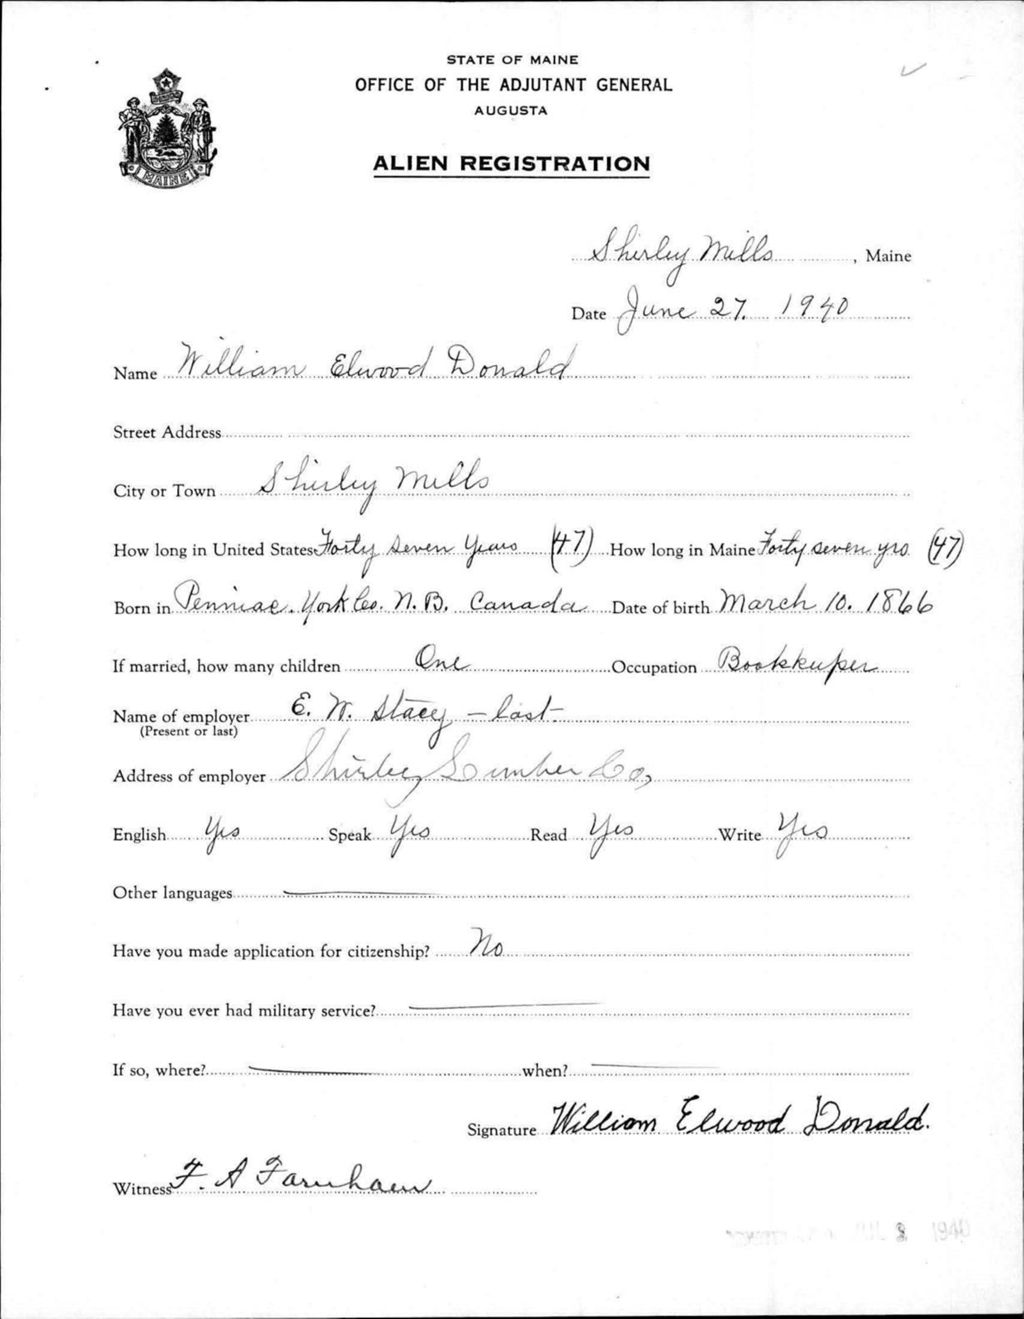 STATE OF MAINE
OFFICE OF THE ADJUTANT GENERAL
AUGUSTA
ALIEN REGISTRATION
MAINE
Shirley Mills, Maine
Date June 27. 1940
Name William Elwood Donald
Street Address
City or Town Shirley Mills
How long in United States Forty seven Years (47) How long in Maine Forty seven yrs (47)
Born in Penniac. York Co. N. B. Canada Date of birth March 10. 1866
If married, how many children One Occupation Bookkeeper
Name of employer E. W. Stacey - last -
(Present or last)
Address of employer Shirley Lumber Co,
English Yes Speak Yes Read Yes Write Yes
Other languages
Have you made application for citizenship? No
Have you ever had military service?
If so, where? when?
Signature William Elwood Donald.
Witness F. A Farnham
2 1940